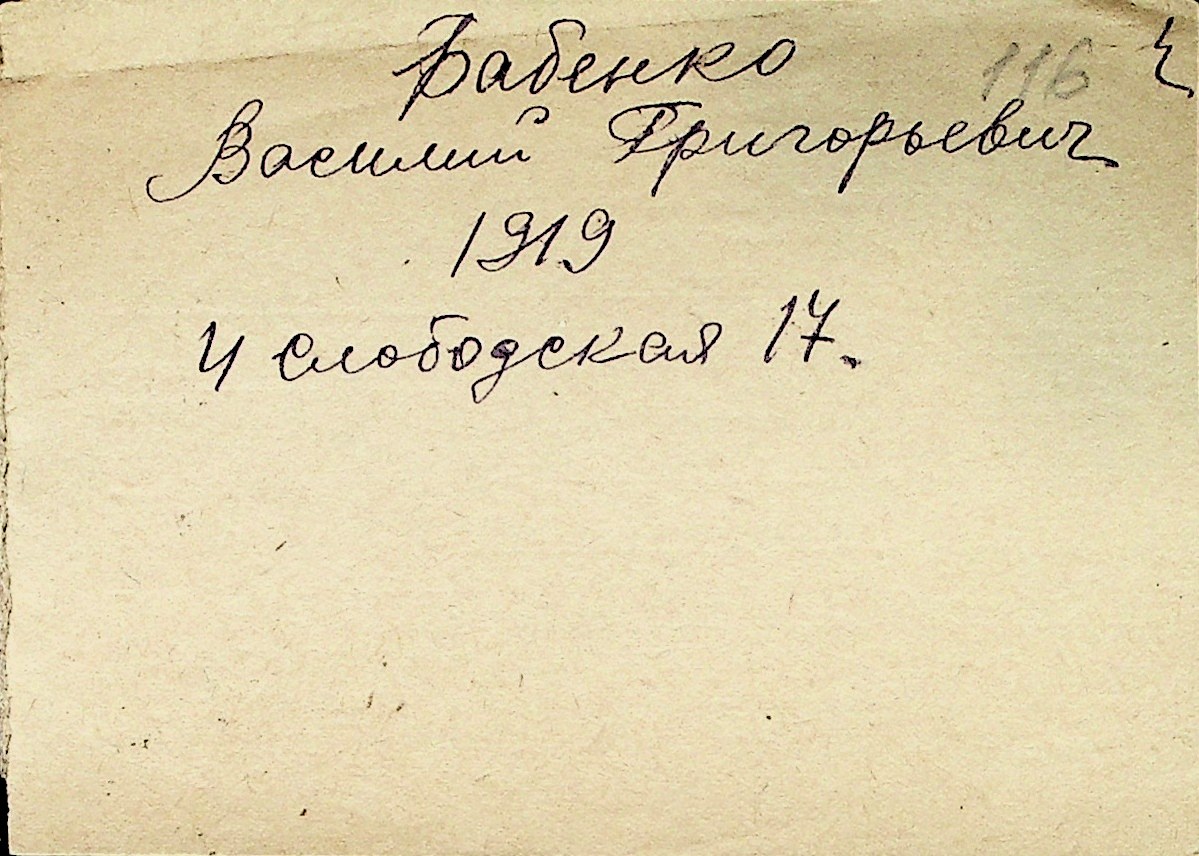 Бабенко 116
Василий Григорьевич
1919
4 слободская 17.